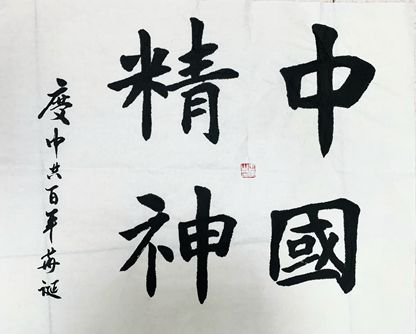 中國
精神
慶中共百年華誕